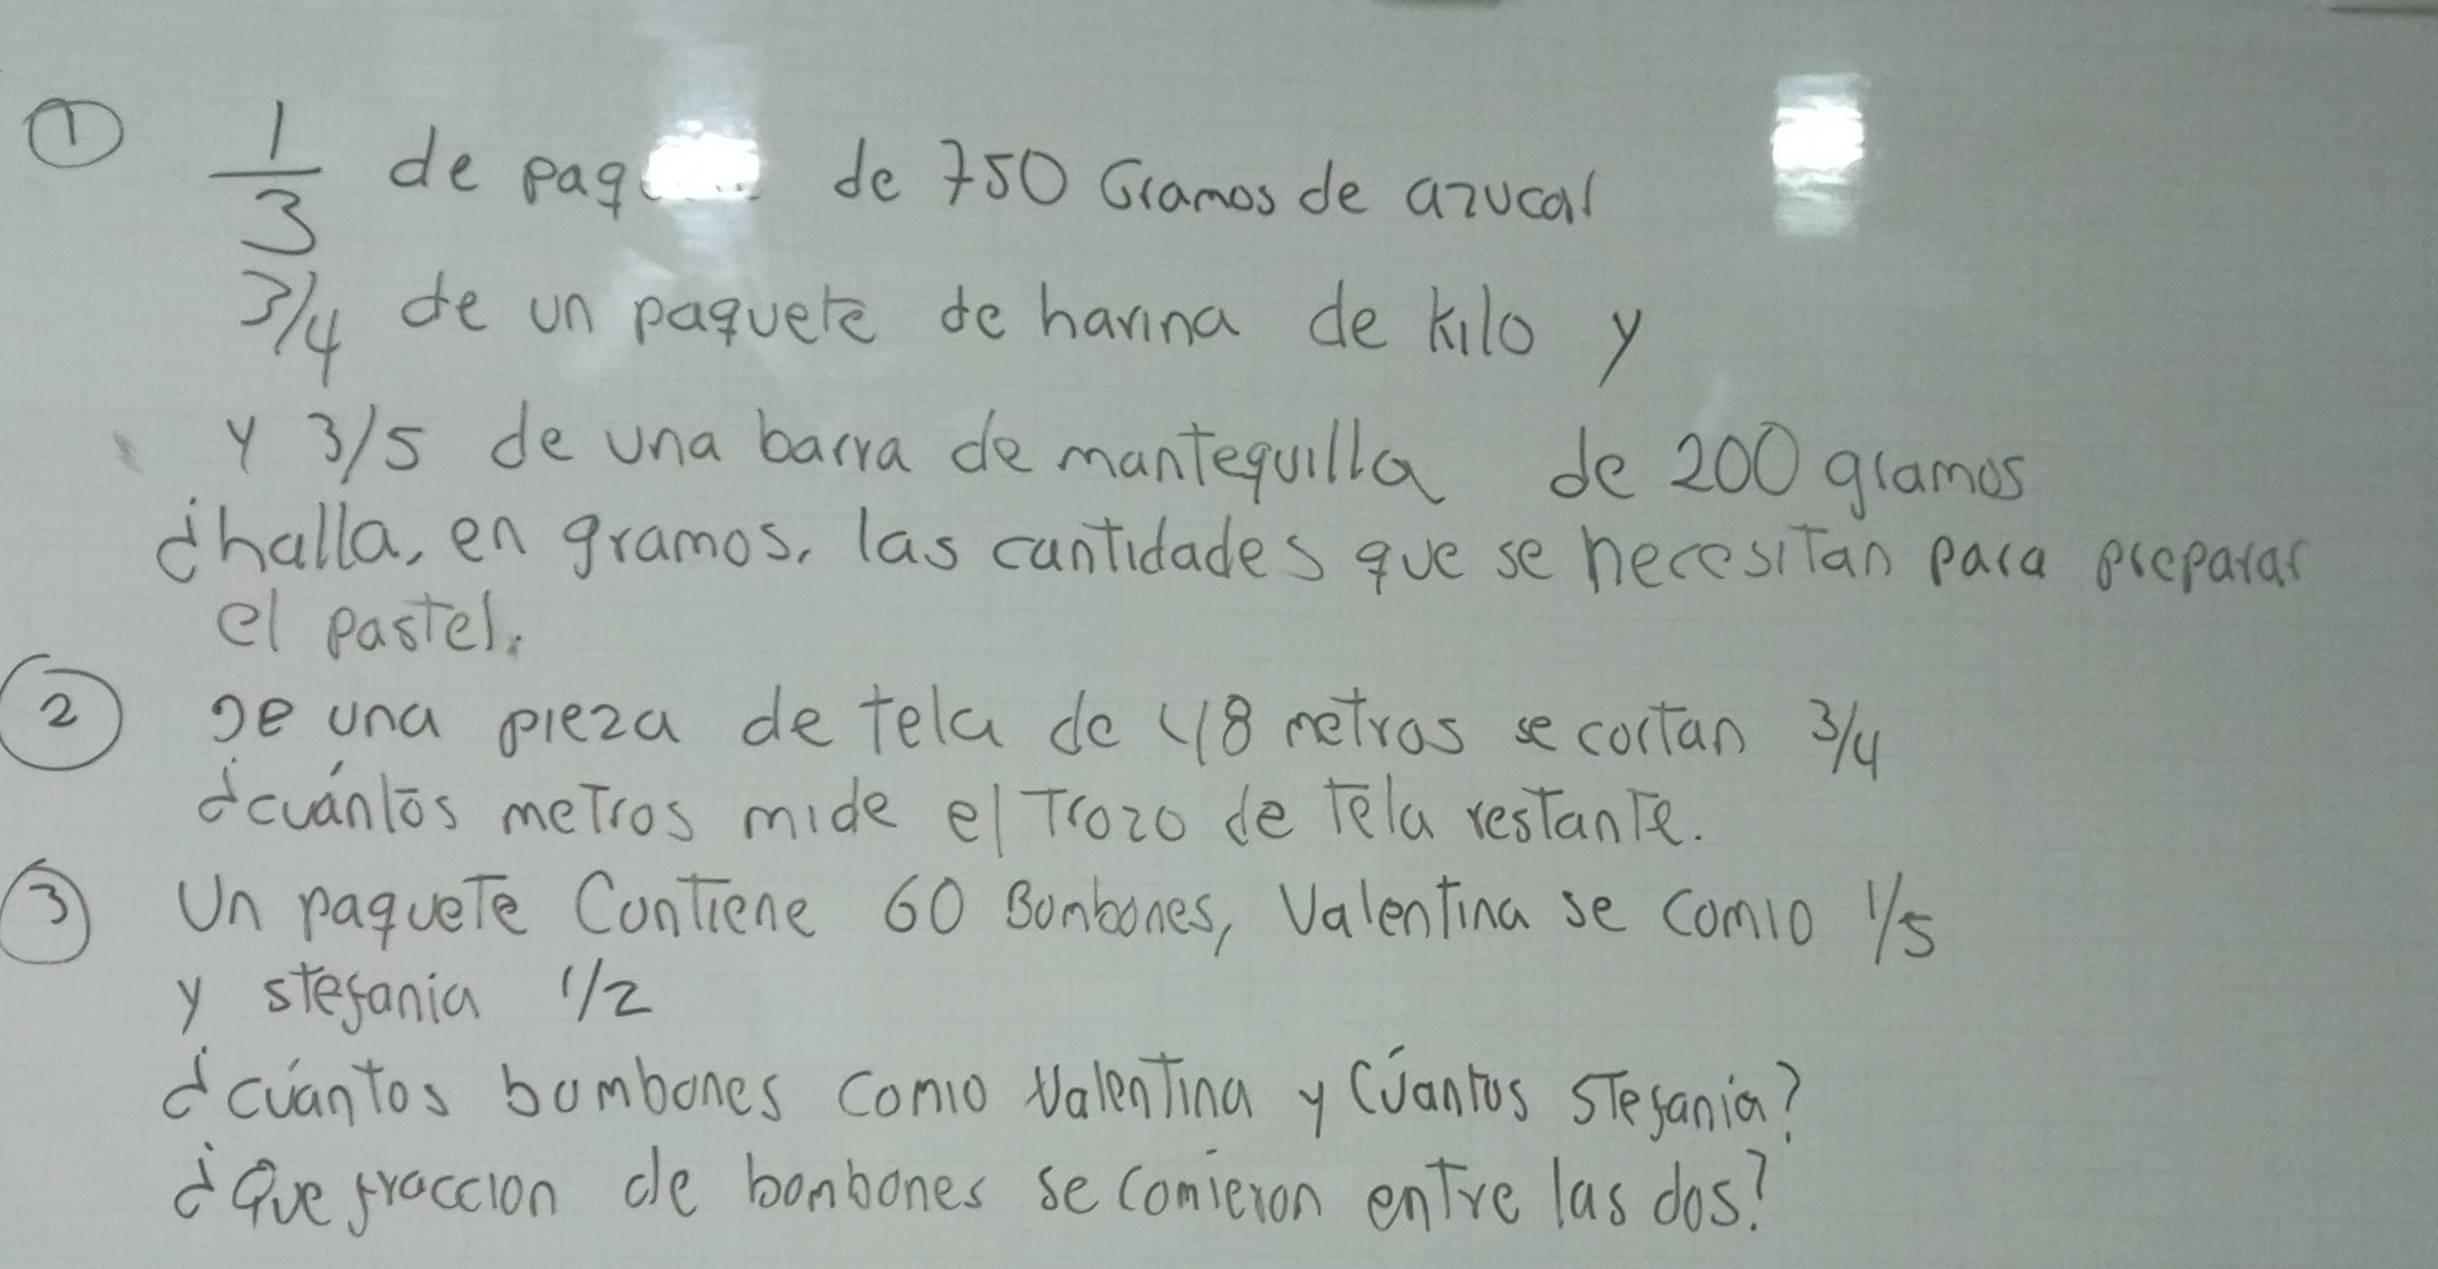 ① 1/3 de paq de 750 Gramos de azucar
3/4 de un paquete de harina de kilo y
y 3/5 de una barra de mantequilla de 200 gramos
¿halla, en gramos, las cantidades que se necesitan para preparar
el pastel.
② De una pieza de tela de 48 metros se cortan 3/4
¿cuántos metros mide el Trozo de Tela restante.
③ Un paquete Contiene 60 Bombones, Valentina se comio 1/5
y stefania 1/2
¿cuántos bombones comio Valentina y Cuántos Stefania?
¿Que fraccion de bombones se comieron entre las dos?